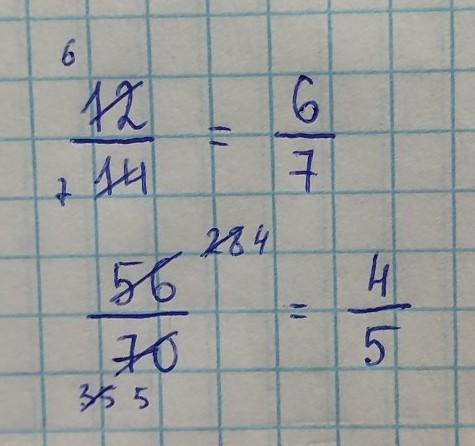 6
12/14 = 6/7
7
28 4
56/70 = 4/5
35 5